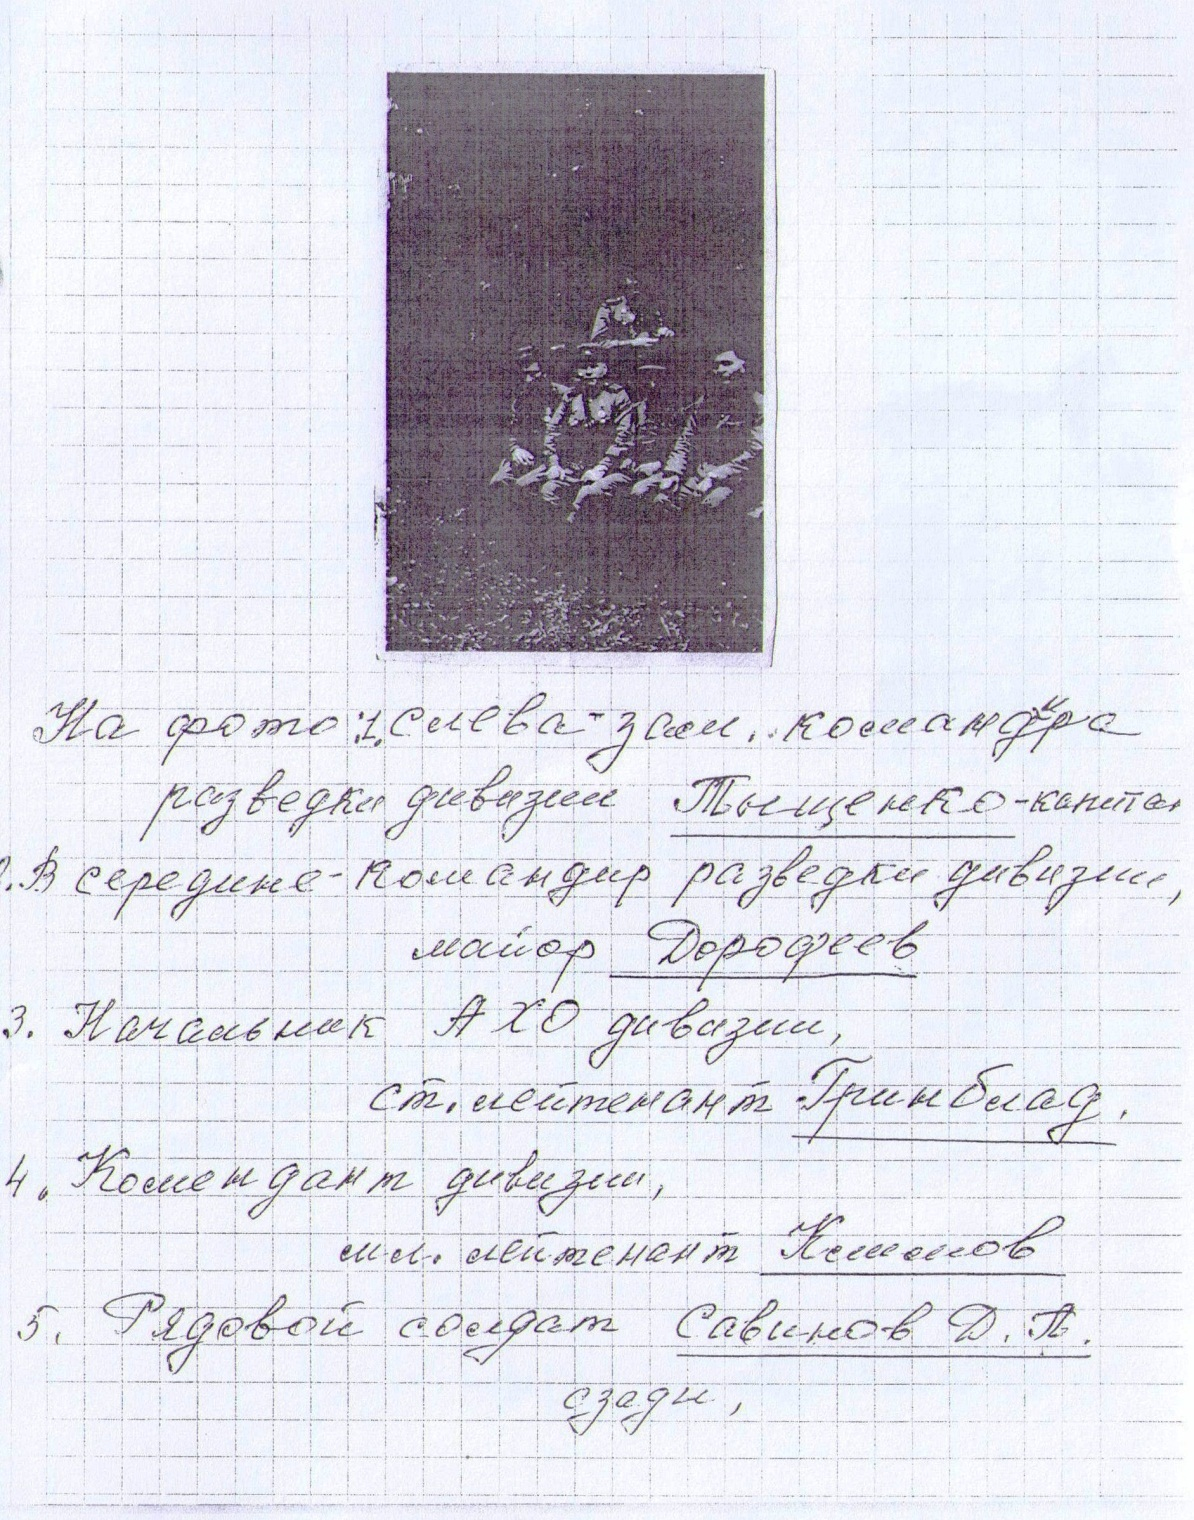 На фото: 1. слева - зам. командира
разведки дивизии Тыщенко - капитан
2. В середине - командир разведки дивизии,
майор Дорофеев
3. Начальник АХО дивизии,
ст. лейтенант Гринблад.
4. Комендант дивизии,
мл. лейтенант
5. Рядовой солдат Савинов Д. П.
сзади,